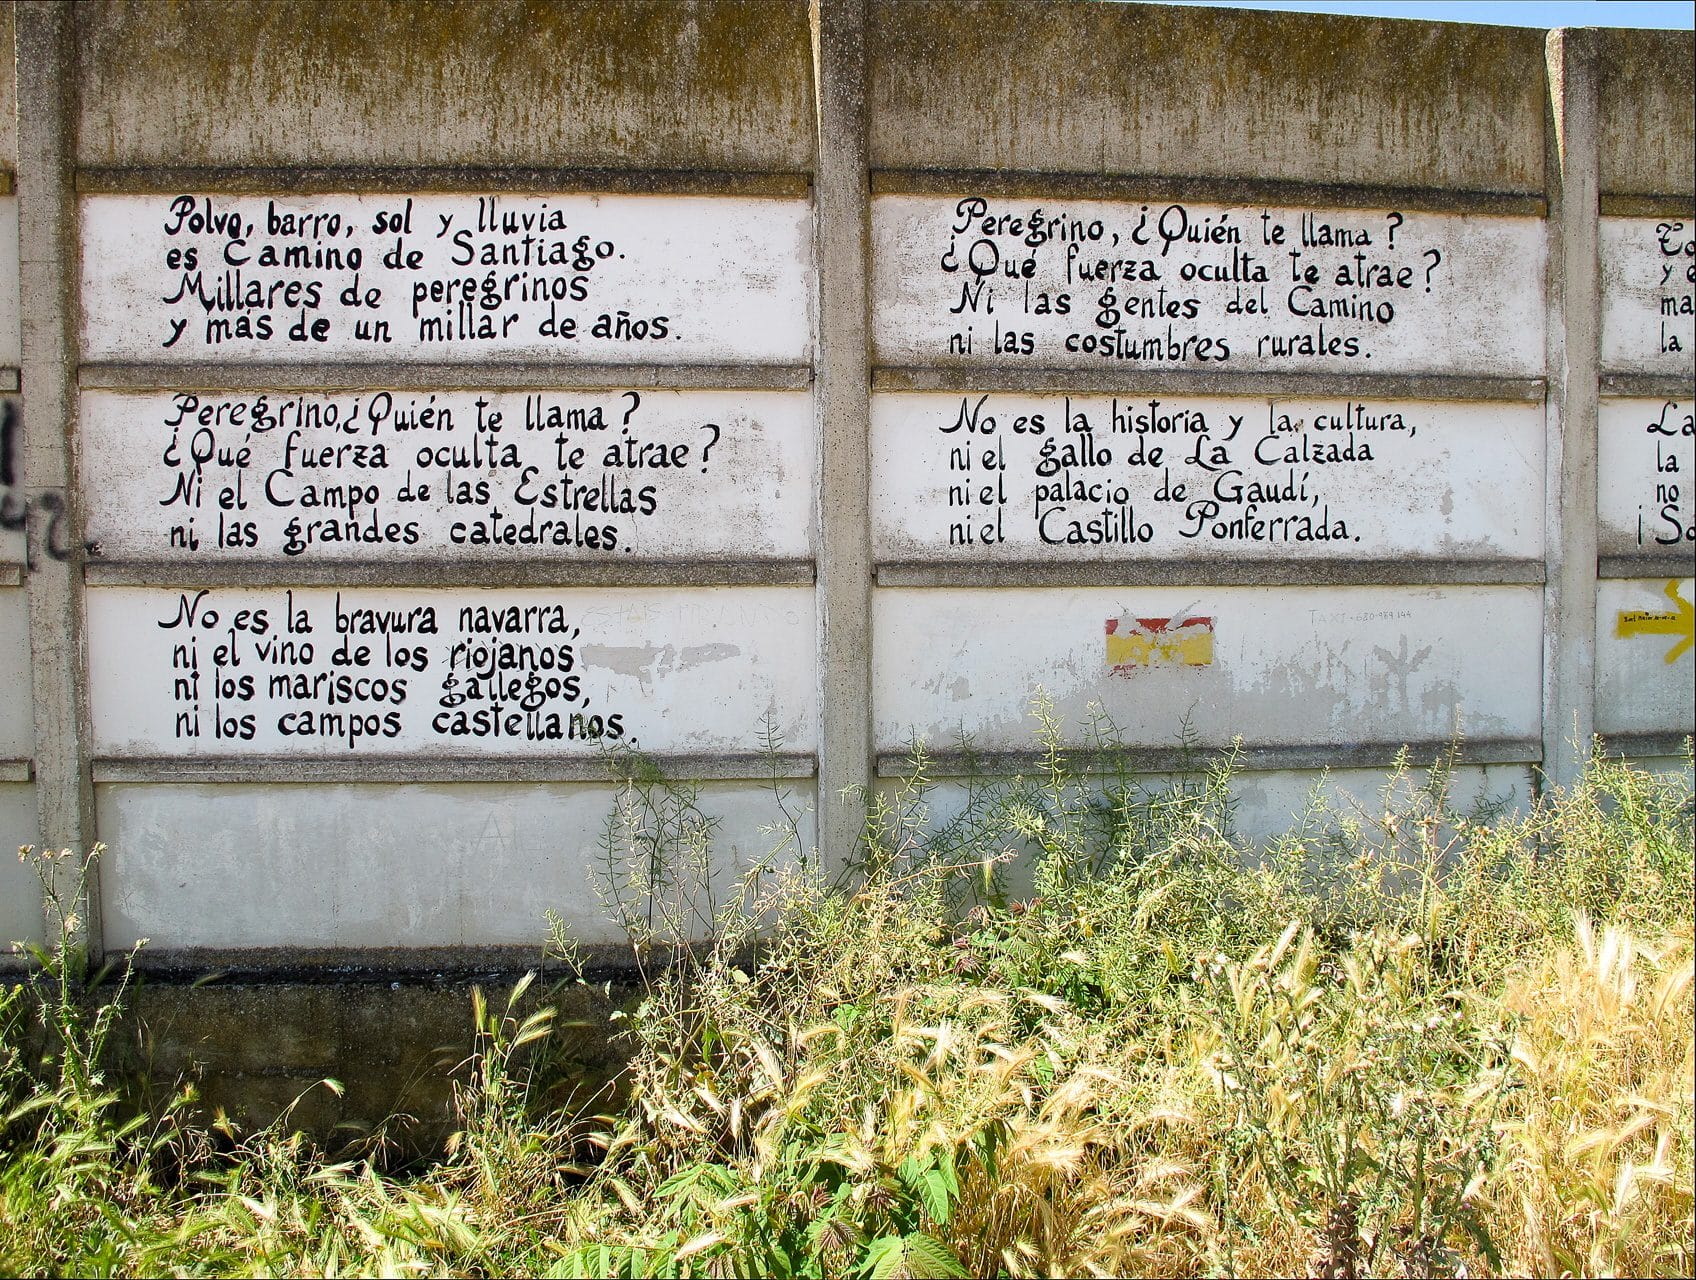 Polvo, barro, sol y lluvia
es Camino de Santiago.
Millares de peregrinos
y más de un millar de años.
Peregrino,¿Quién te llama?
¿Qué fuerza oculta te atrae?
Ni el Campo de las Estrellas
ni las grandes catedrales.
No es la bravura navarra,
ni el vino de los riojanos
ni los mariscos gallegos,
ni los campos castellanos.
Peregrino, ¿Quién te llama?
¿Qué fuerza oculta te atrae?
Ni las gentes del Camino
ni las costumbres rurales.
No es la historia y la cultura,
ni el gallo de La Calzada
ni el palacio de Gaudí,
ni el Castillo Ponferrada.
TAXI-680-989 144
To
y e
ma
la
La
la
no
¡So